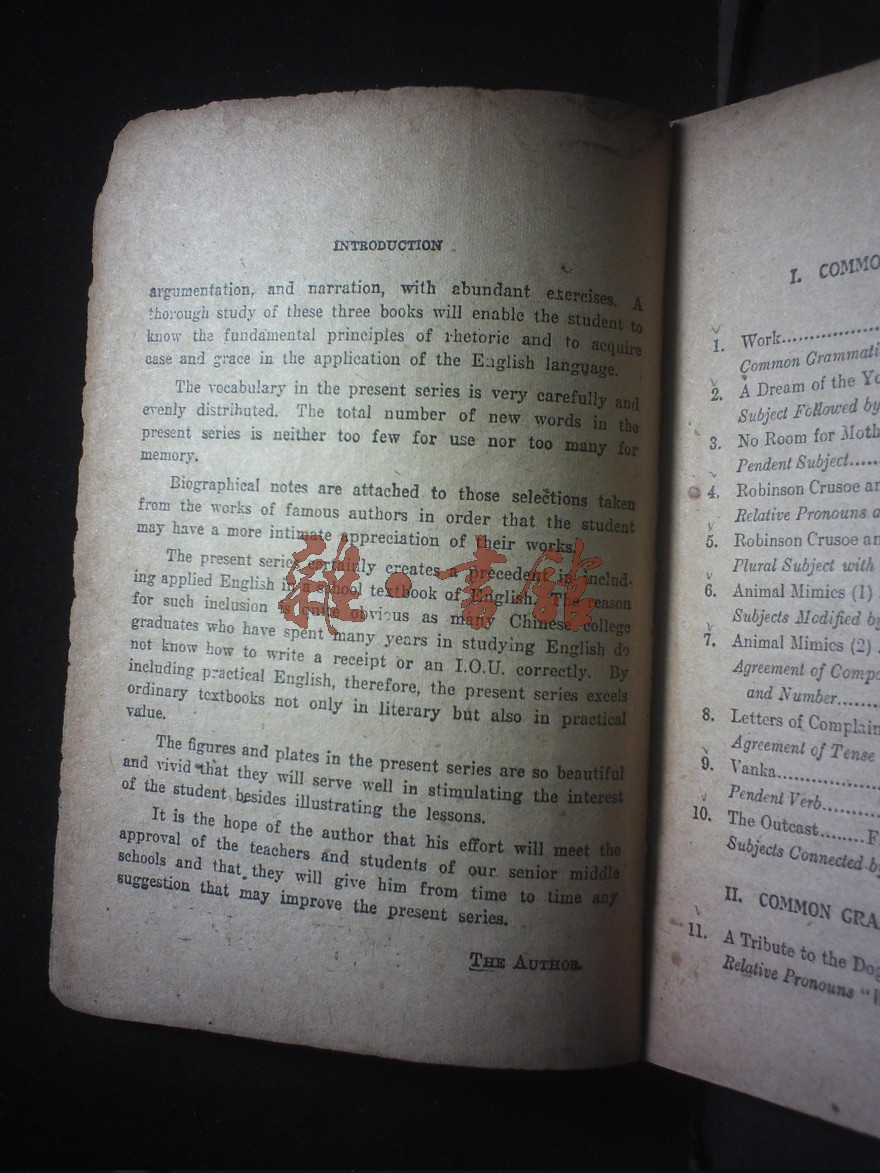 INTRODUCTION
argumentation, and narration, with abundant exercises. A
thorough study of these three books will enable the student to
know the fundamental principles of rhetoric and to acquire
ease and grace in the application of the English language.
The vocabulary in the present series is very carefully and
evenly distributed. The total number of new words in the
present series is neither too few for use nor too many for
memory.
Biographical notes are attached to those selections taken
from the works of famous authors in order that the student
may have a more intimate appreciation of their works.
The present series certainly creates a precedent in includ-
ing applied English in a school textbook of English. The reason
for such inclusion is quite obvious as many Chinese college
graduates who have spent many years in studying English do
not know how to write a receipt or an I.O.U. correctly. By
including practical English, therefore, the present series excels
ordinary textbooks not only in literary but also in practical
value.
The figures and plates in the present series are so beautiful
and vivid that they will serve well in stimulating the interest
of the student besides illustrating the lessons.
It is the hope of the author that his effort will meet the
approval of the teachers and students of our senior middle
schools and that they will give him from time to time any
suggestion that may improve the present series.
THE AUTHOR.
雜·書館
I. COMMO
1. Work
Common Grammati
2. A Dream of the Yo
Subject Followed by
3. No Room for Moth
Pendent Subject
4. Robinson Crusoe an
Relative Pronouns a
5. Robinson Crusoe an
Plural Subject with
6. Animal Mimics (1)
Subjects Modified by
7. Animal Mimics (2)
Agreement of Compo
and Number
8. Letters of Complain
Agreement of Tense
9. Vanka
Pendent Verb
10. The Outcast........F
Subjects Connected by
II. COMMON GRA
11. A Tribute to the Dog
Relative Pronouns